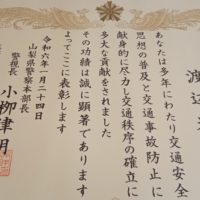 渡辺
あなたは多年にわたり交通安全
思想の普及と交通事故防止に
献身的に尽力し交通秩序の確立に
多大な貢献をされました
その功績は誠に顕著であります
よってここに表彰します
令和六年一月二十四日
山梨県警察本部長
警視長 小柳津明